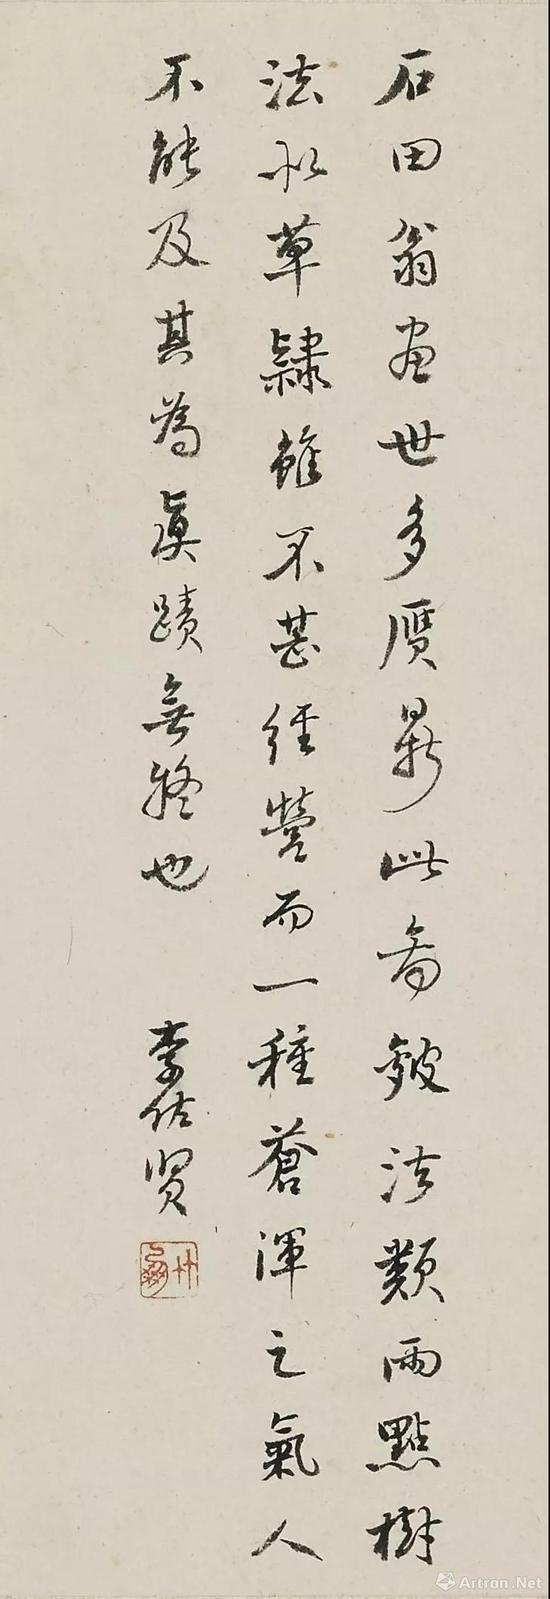 石田翁畫世多贋鼎此圖皴法類雨點樹
法似草隸雖不甚經營而一種蒼渾之氣人
不能及其為真蹟無疑也 李佐賢
竹朋
Artron.Net